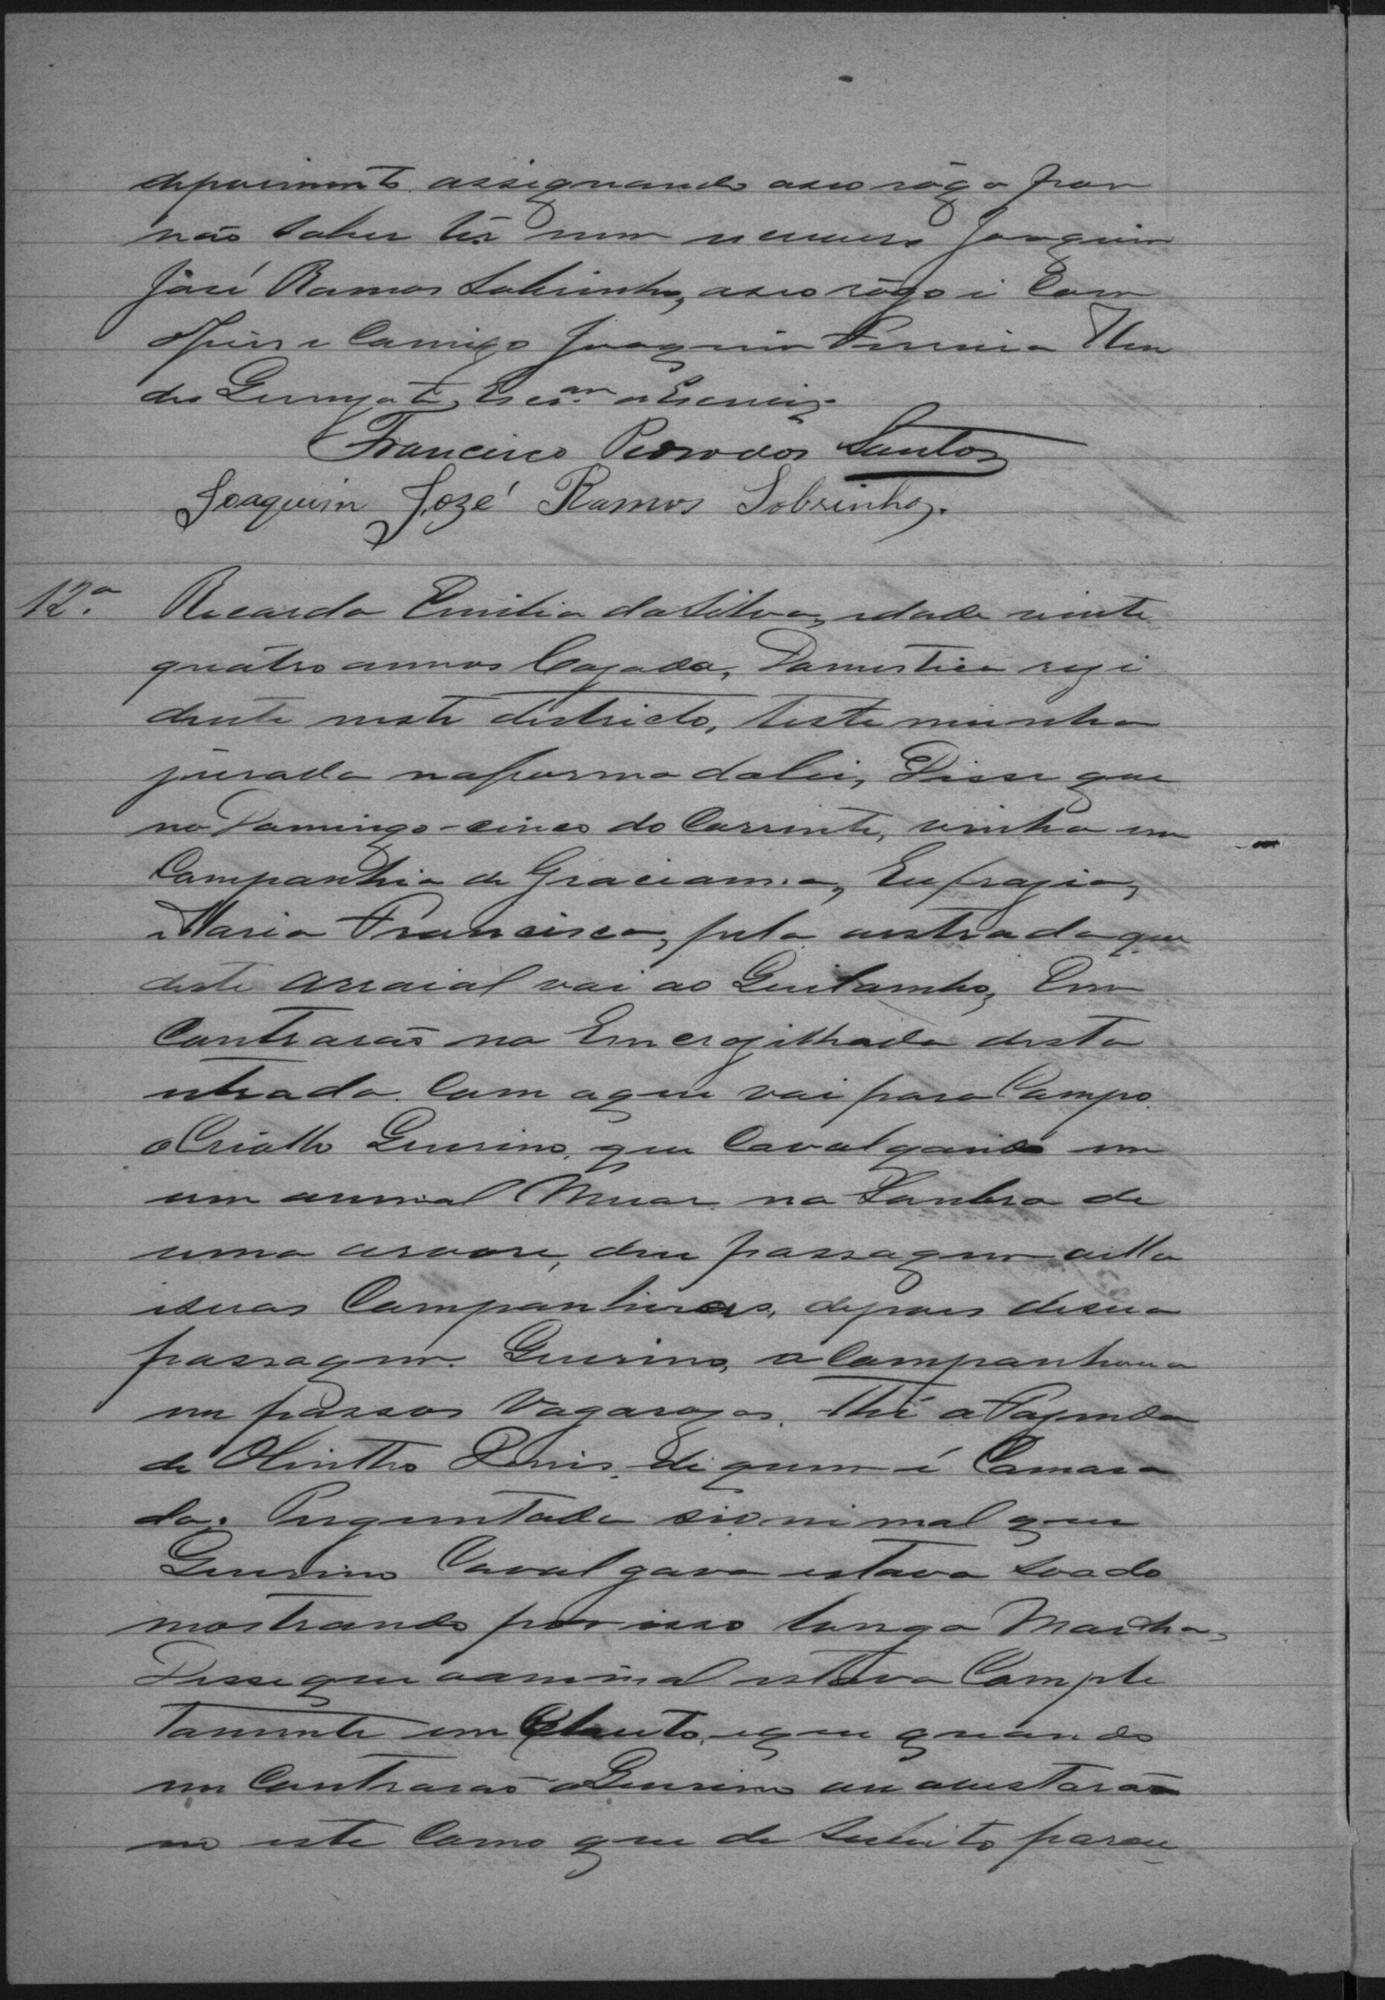 depoimento assignando aseo rôgo por
não saber lêr nem escrever Joaquim
José Ramos Sobrinho, aseo rôgo i com
o Juiz e comigo Joaquim Pereira Men
des Escr.am o Escrevi.
Francisco Pedro dos Santos
Joaquim Jozé Ramos Sobrinho.
12.a Ricarda Emilia da Silva, idade vinte
quatro annos Cazada, Domestica rezi
dente neste districto, testemunha
jurada na forma da lei, Disse que
no Domingo cinco do Corrente, vinha em
Companhia de Graciana, Eufrazia,
Maria Francisca, pela estrada que
deste arraial vai ao Guilamho, Em
Contrarão na Emcrozilhada desta
estrada com a que vai para Campo
o Criollo Guirino, que Cavalgando em
um animal Muar na Sombra de
uma arvore, deu passagem a ella
e suas Companheiras, depois de sua
passagem Guirino, a Companhou a
em passos Vagarozos. Thé a Fazenda
de Olintho Diniz, de quem é Camara
da. Perguntada si o nimal que
Guirino Cavalgava estava soado
mostrando por isso longa Marcha,
Disse que o animal estava Comple
tamente em chuto, e que quando
em Contrarão o Guirino
no este Como que de subito parou